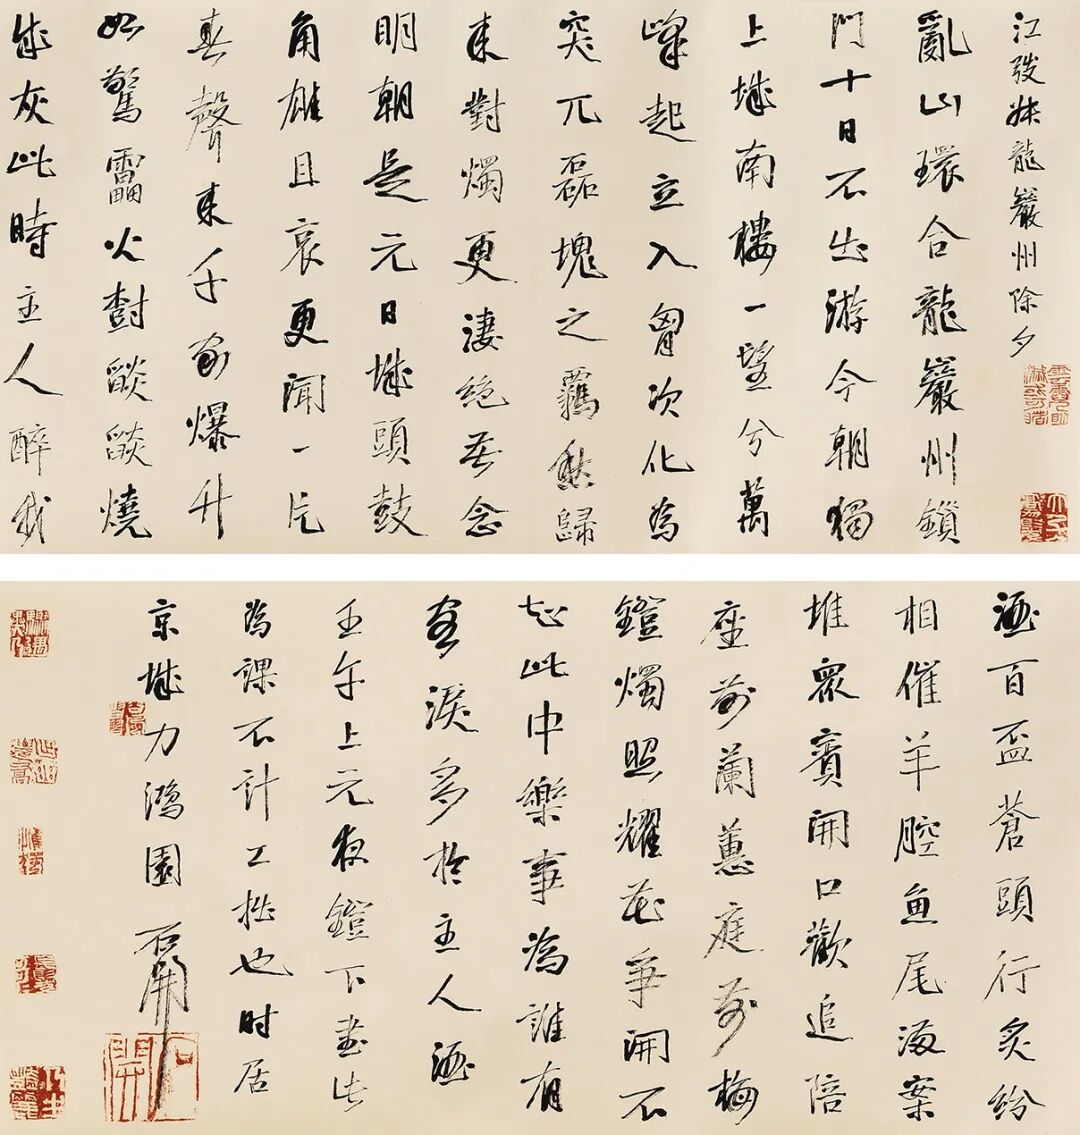 江弢叔龍巖州除夕
亂山環合龍巖州鎖
門十日不出游今朝獨
上城南樓一望兮萬
峰起立入胸次化為
突兀磊塊之羈愁歸
來對燭更淒絕吾念
明朝是元日城頭鼓
角雄且哀更聞一片
春聲來千家爆竹
如驚雷火樹燄燄燒
成灰此時主人醉我
酒百盃蒼頭行炙紛
相催羊腔魚尾滿案
堆眾賓開口歡追陪
座前蘭蕙庭前梅
鐙燭照耀花爭開不
知此中樂事為誰有
客淚多於主人酒
壬午上元夜鐙下書此
為課不計工拙也时居
京城力鴻園 石開
石開